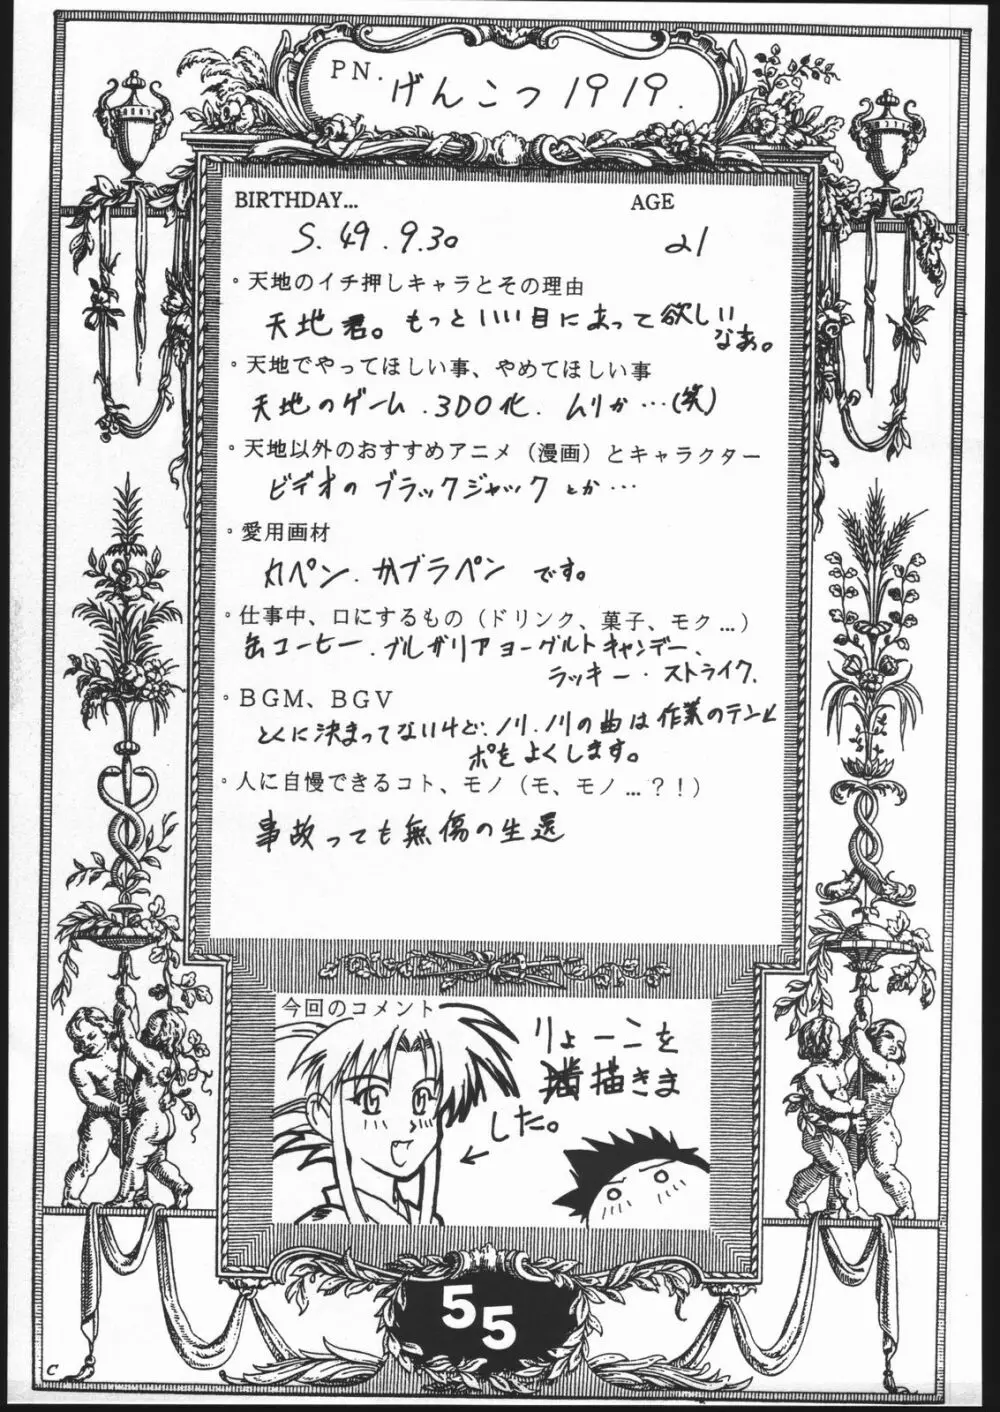 PN. げんこつ1919.
BIRTHDAY...
AGE
S.49.9.30
21
・天地のイチ押しキャラとその理由
天地君。もっといい目にあって欲しい
なあ。
・天地でやってほしい事、やめてほしい事
天地のゲーム.3DO化.ムリか…(笑)
・天地以外のおすすめアニメ（漫画）とキャラクター
ビデオのブラックジャックとか…
・愛用画材
丸ペン.カブラペンです。
・仕事中、口にするもの（ドリンク、菓子、モク…）
缶コーヒー.ブルガリアヨーグルトキャンデー、
ラッキー・ストライク.
・BGM、BGV
とくに決まってないけど、ノリ.ノリの曲は作業のテン
ポをよくします。
・人に自慢できるコト、モノ（モ、モノ…？！）
事故っても無傷の生還
今回のコメント
りょーこを
描きま
した。
55
C